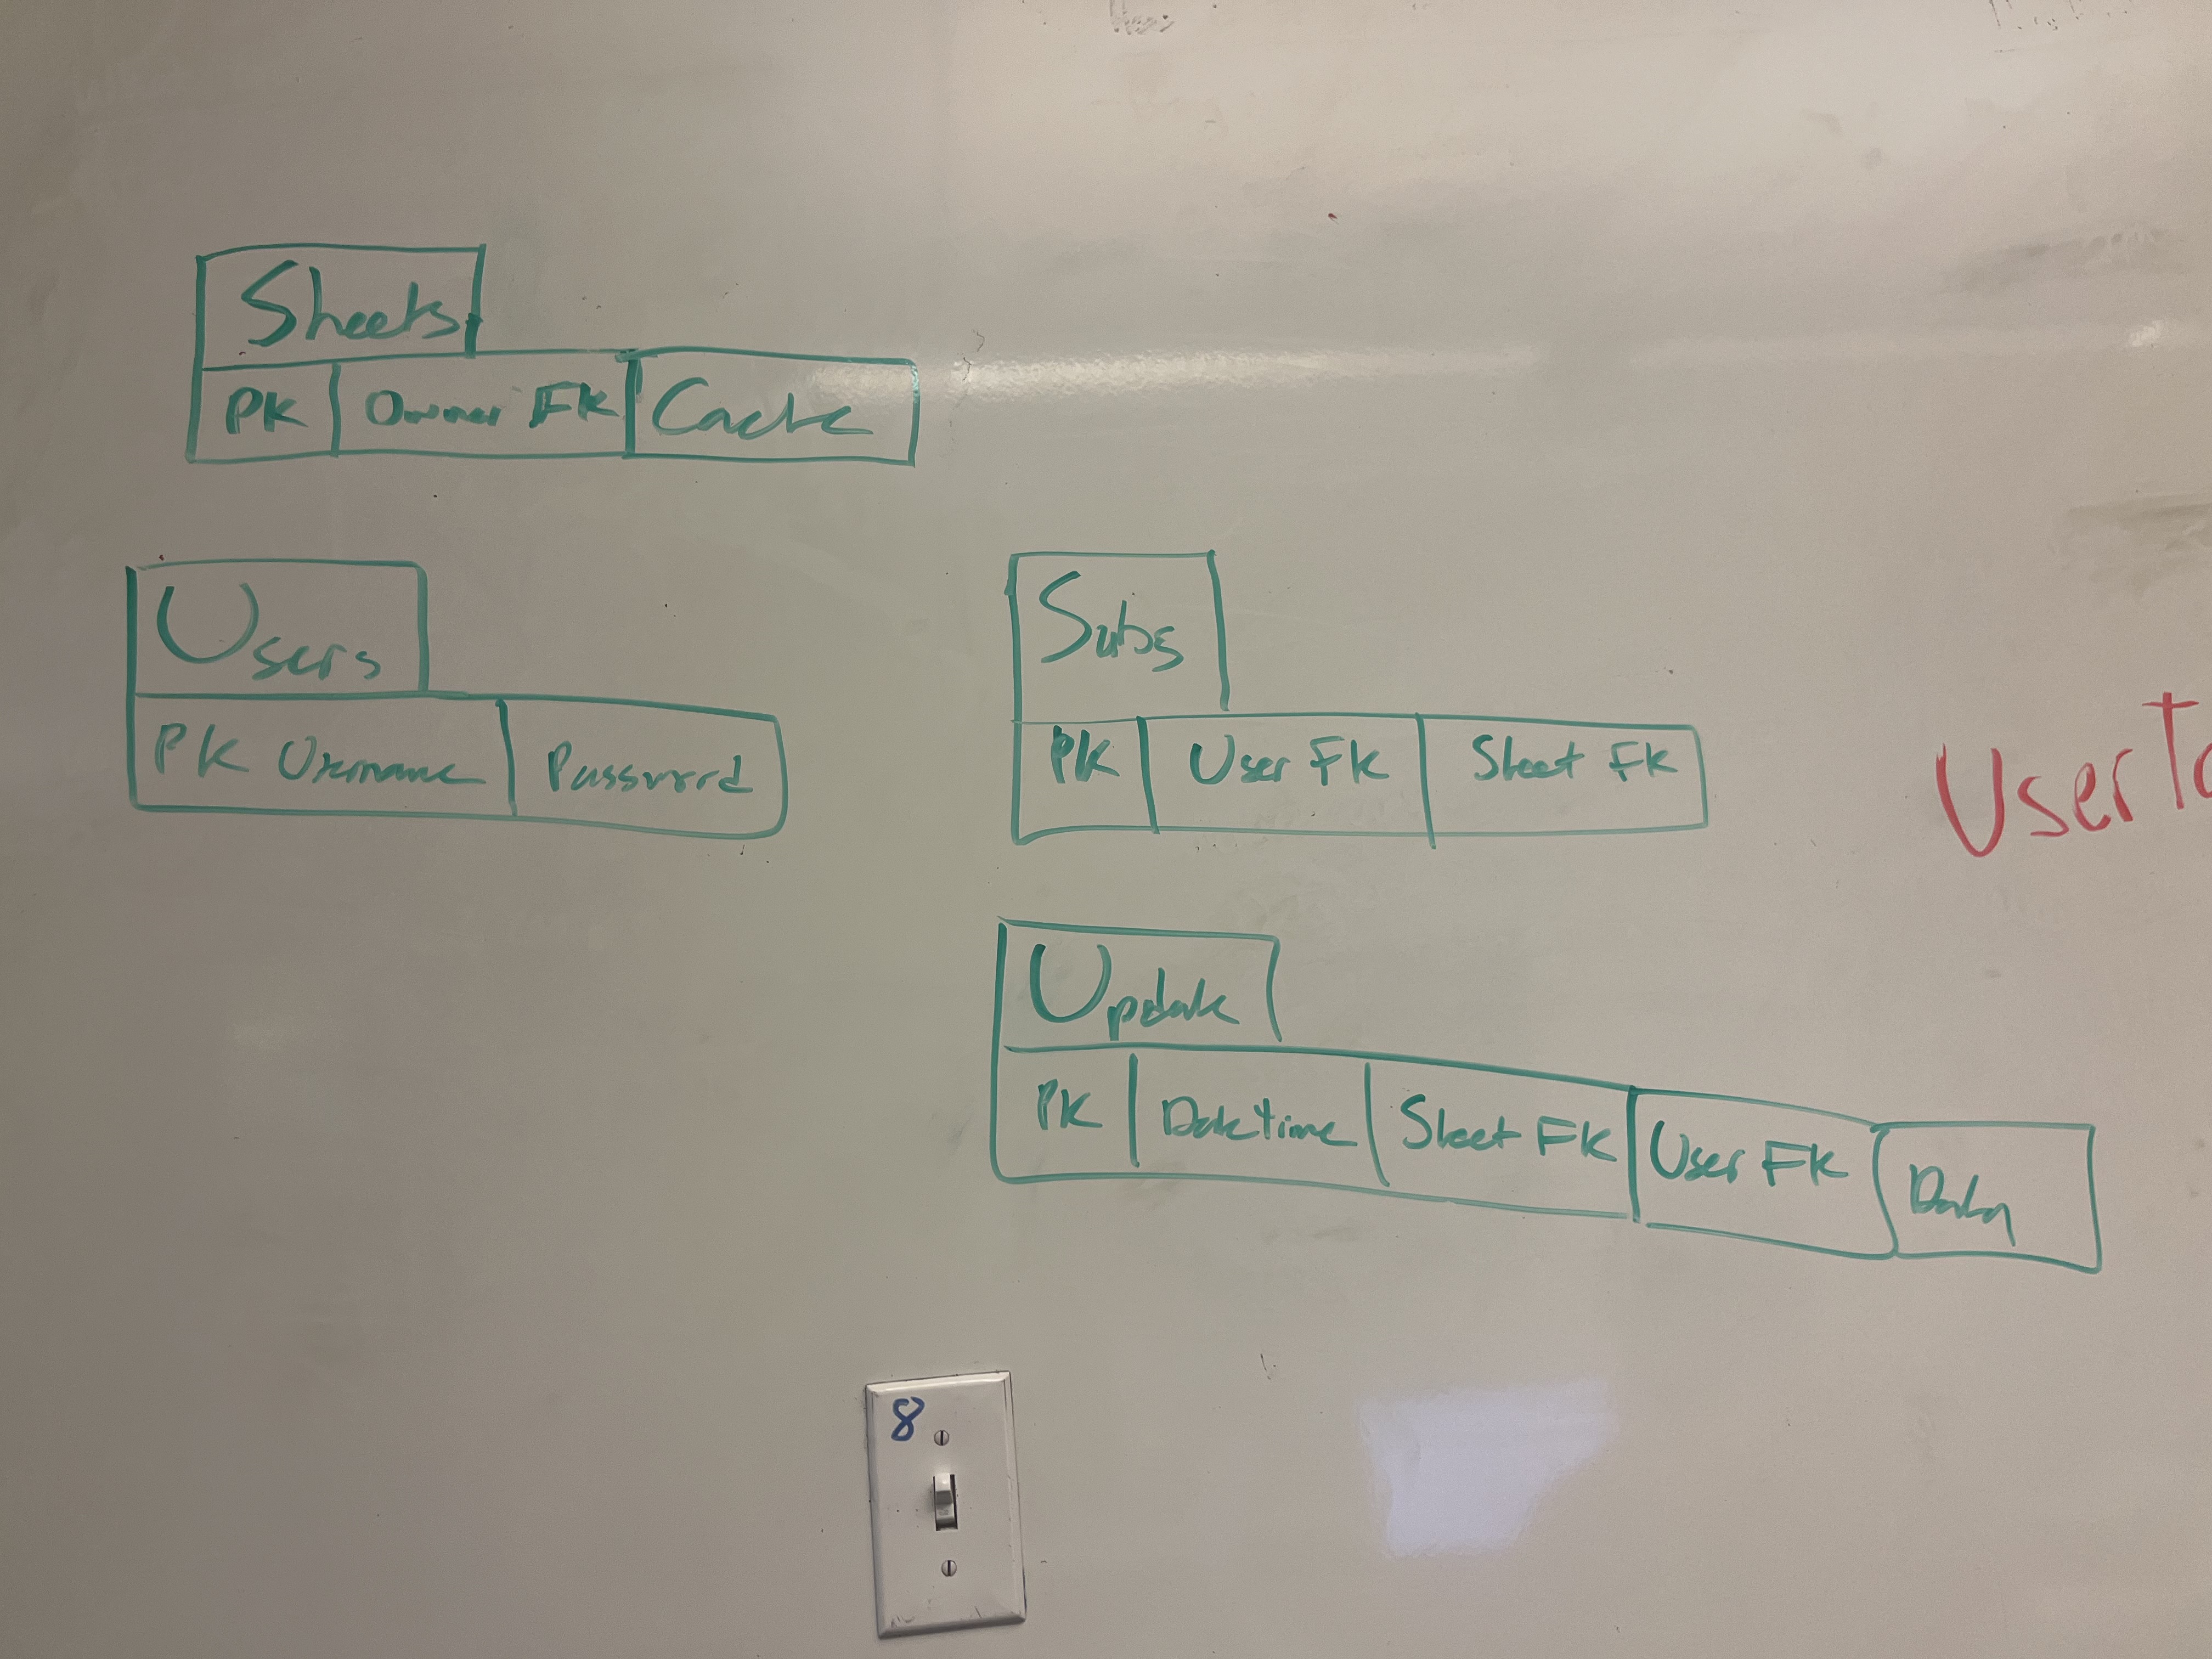 Sheets
PK Owner FK Cache
Users
PK Username Password
Subs
PK User FK Sheet FK
User
Update
PK Datetime Sheet FK User FK Data
8